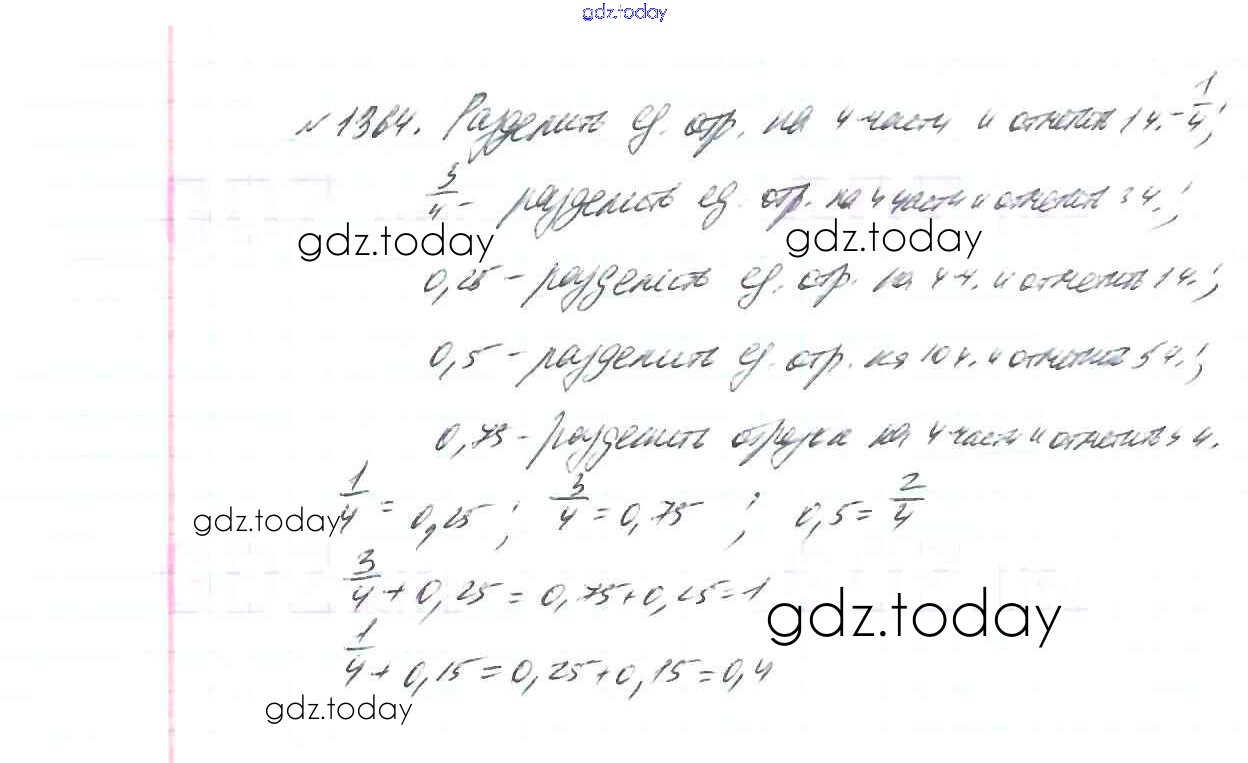 gdz.today
№ 1364. Разделить ед. отр. на 4 части и отметить 1 ч. - 1/4;
3/4 - разделить ед. отр. на 4 части и отметить 3 ч.;
gdz.today gdz.today
0,25 - разделить ед. отр. на 4 ч. и отметить 1 ч.;
0,5 - разделить ед. отр. на 10 ч. и отметить 5 ч.;
0,75 - разделить отрезок на 4 части и отметить ч.
gdz.today 1/4 = 0,25 ; 3/4 = 0,75 ; 0,5 = 2/4
3/4 + 0,25 = 0,75 + 0,25 = 1
gdz.today
1/4 + 0,15 = 0,25 + 0,15 = 0,4
gdz.today